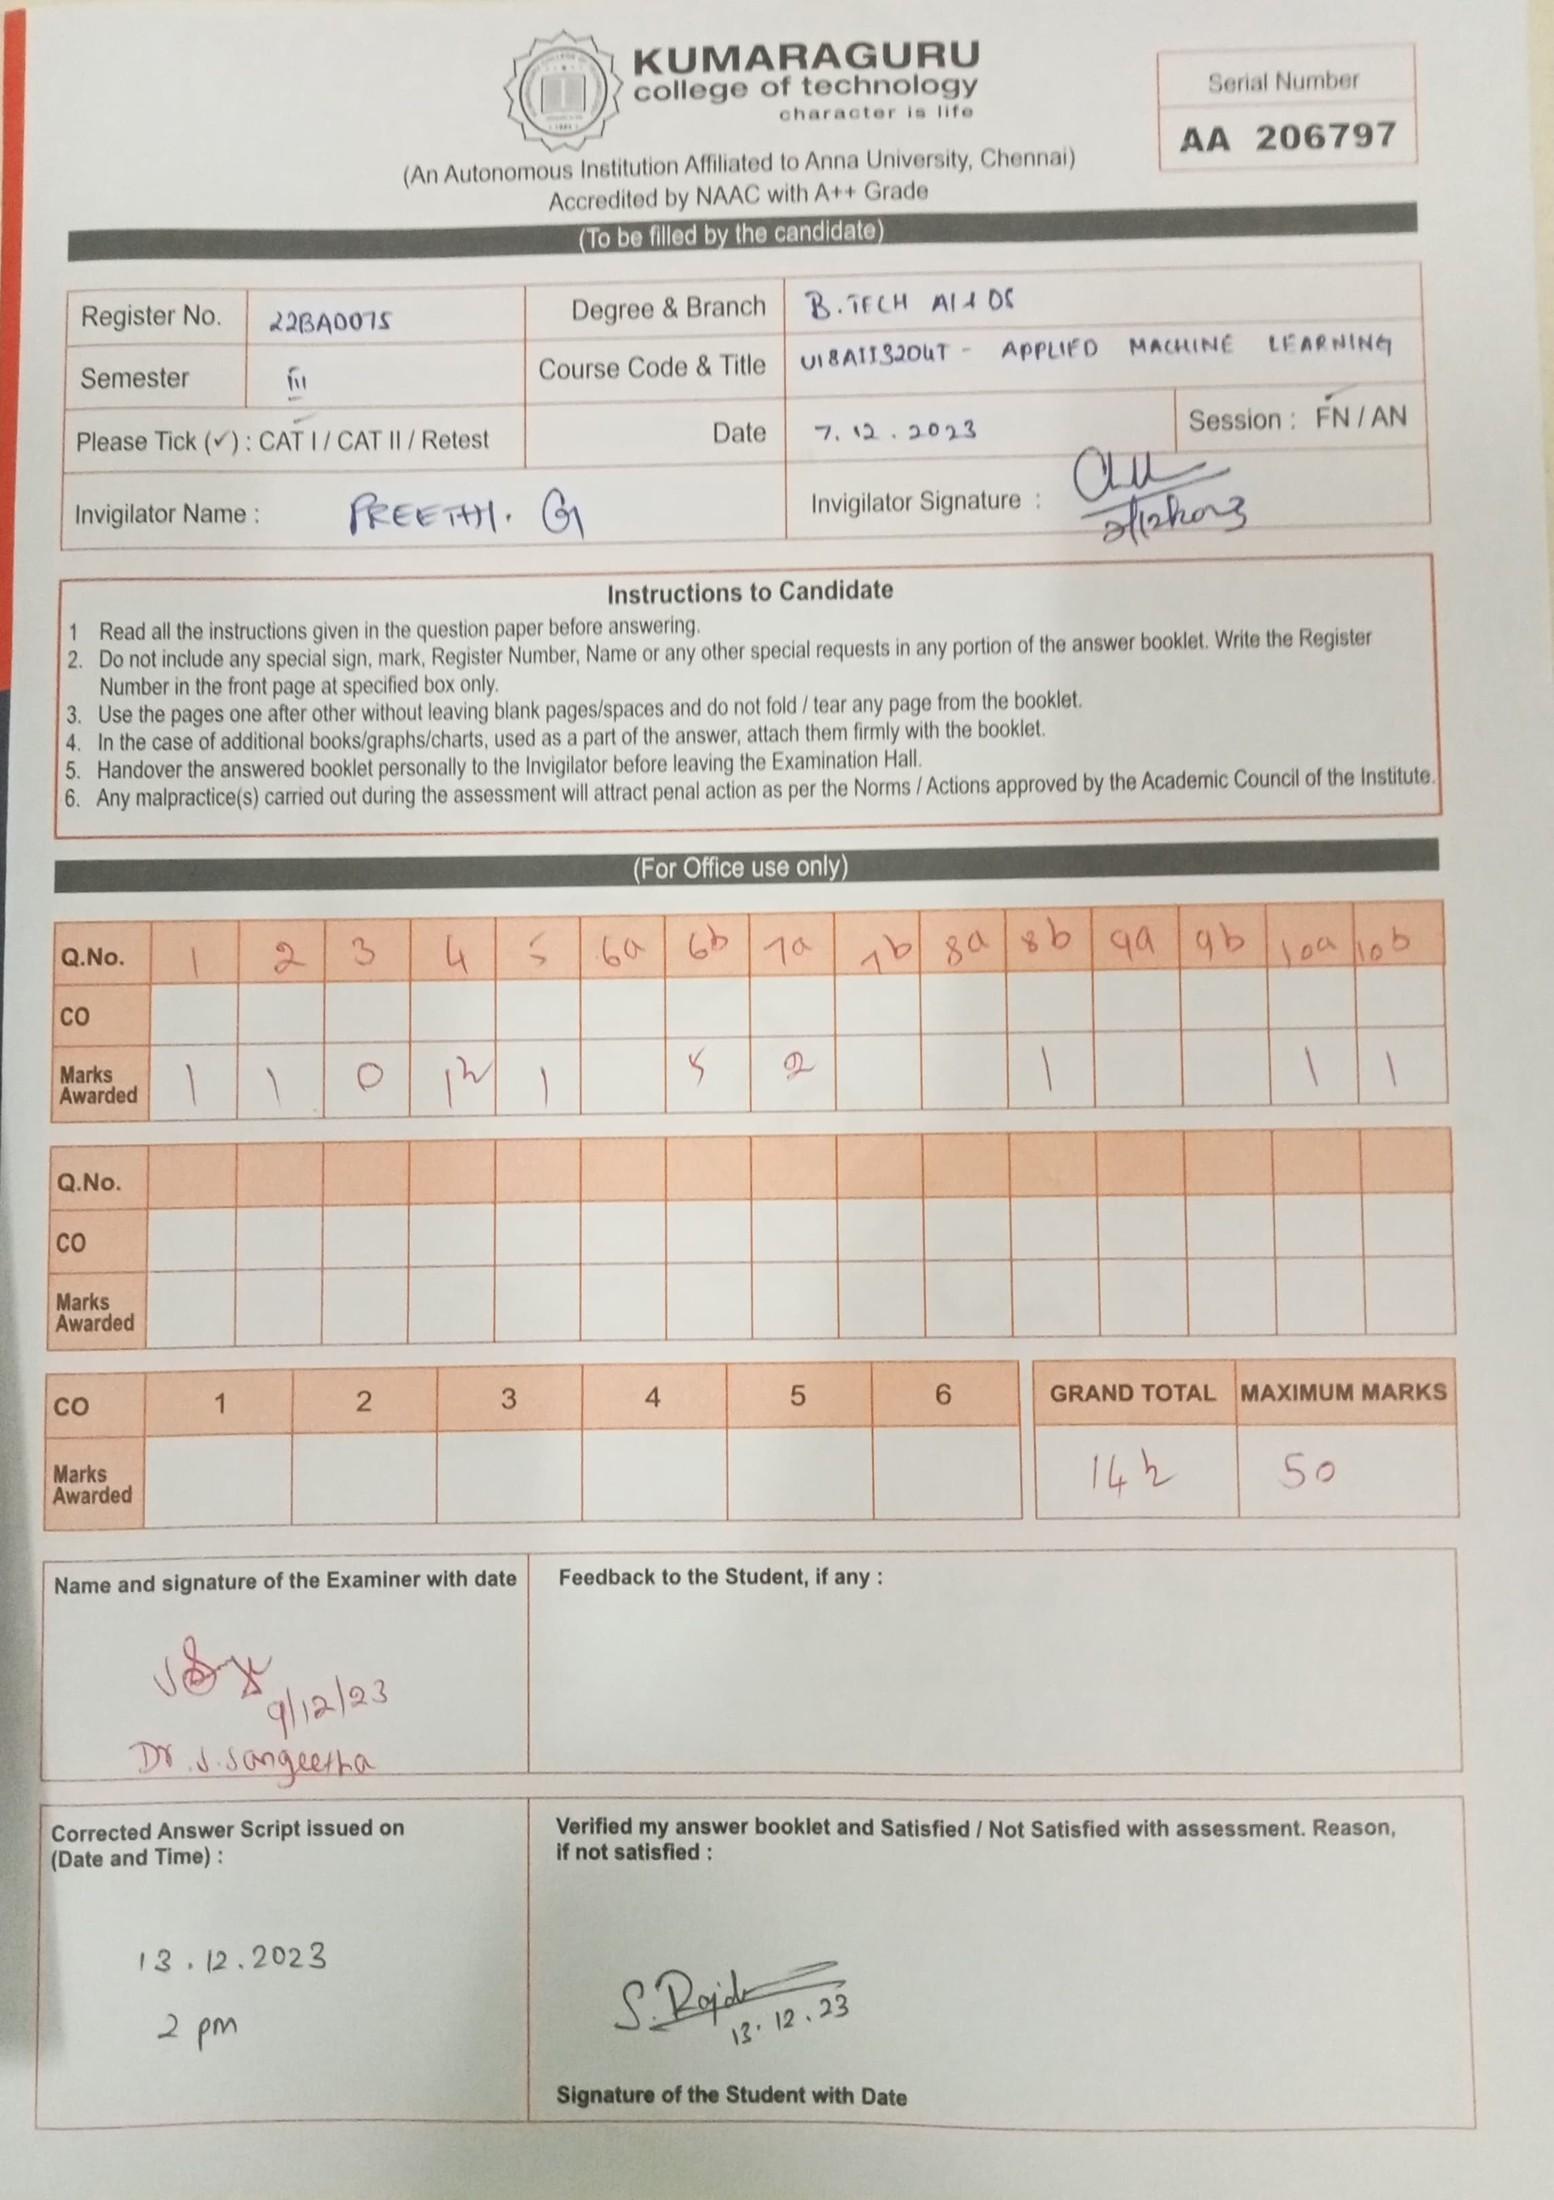 KUMARAGURU
college of technology
character is life
Serial Number
AA 206797
(An Autonomous Institution Affiliated to Anna University, Chennai)
Accredited by NAAC with A++ Grade
(To be filled by the candidate)
Register No. 22BAD075 Degree & Branch B.TECH AI & DS
Semester III Course Code & Title U18AII3204T - APPLIED MACHINE LEARNING
Please Tick (✓) : CAT I / CAT II / Retest Date 7.12.2023 Session : FN / AN
Invigilator Name : PREETHI. G Invigilator Signature :
Instructions to Candidate
1 Read all the instructions given in the question paper before answering.
2. Do not include any special sign, mark, Register Number, Name or any other special requests in any portion of the answer booklet. Write the Register
Number in the front page at specified box only.
3. Use the pages one after other without leaving blank pages/spaces and do not fold / tear any page from the booklet.
4. In the case of additional books/graphs/charts, used as a part of the answer, attach them firmly with the booklet.
5. Handover the answered booklet personally to the Invigilator before leaving the Examination Hall.
6. Any malpractice(s) carried out during the assessment will attract penal action as per the Norms / Actions approved by the Academic Council of the Institute.
(For Office use only)
Q.No. 1 2 3 4 5 6a 6b 7a 7b 8a 8b 9a 9b 10a 10b
CO
Marks
Awarded 1 1 0 1½ 1 5 2 1 1 1
Q.No.
CO
Marks
Awarded
CO 1 2 3 4 5 6 GRAND TOTAL MAXIMUM MARKS
Marks
Awarded 14½ 50
Name and signature of the Examiner with date Feedback to the Student, if any :
9/12/23
Dr.J.Sangeetha
Corrected Answer Script issued on
(Date and Time) :
13.12.2023
2 pm
Verified my answer booklet and Satisfied / Not Satisfied with assessment. Reason,
if not satisfied :
13.12.23
Signature of the Student with Date